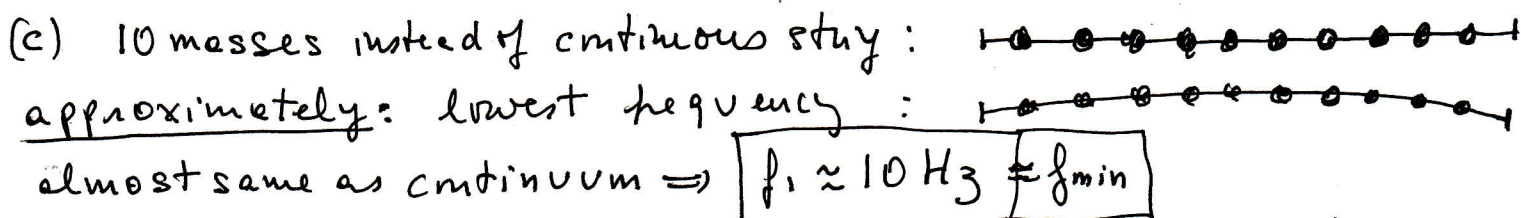 (c) 10 masses instead of continuous string :
approximately: lowest frequency :
almost same as continuum ⇒ f₁ ≈ 10 Hz ≈ fmin